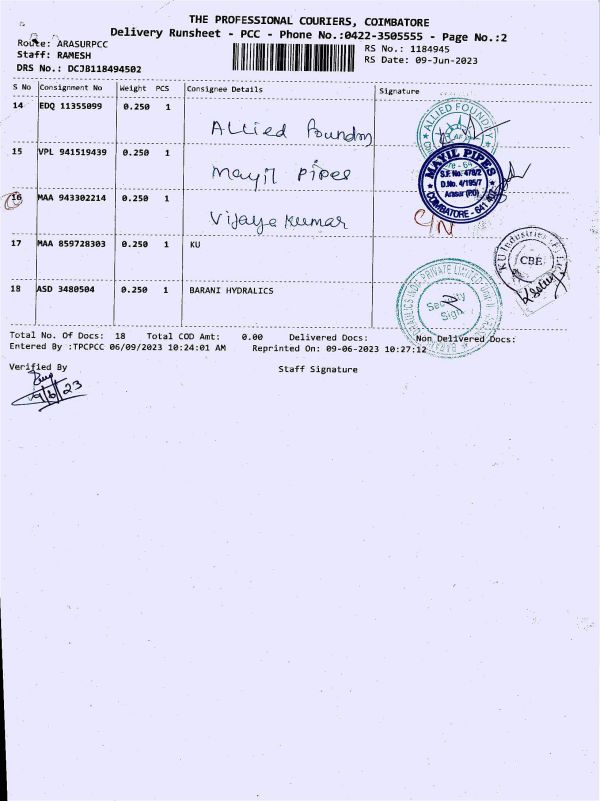 THE PROFESSIONAL COURIERS, COIMBATORE
Delivery Runsheet - PCC - Phone No.:0422-3505555 - Page No.:2
Route: ARASURPCC RS No.: 1184945
Staff: RAMESH RS Date: 09-Jun-2023
DRS No.: DCJB118494502
S No Consignment No Weight PCS Consignee Details Signature
14 EDQ 11355099 0.250 1 Allied Foundry
ALLIED FOUNDRY
15 VPL 941519439 0.250 1 Mayil Pipes
MAYIL PIPES
S.F. No: 478/2
D.No. 4/195/7
Arasur (PO)
COIMBATORE - 641 407
16 MAA 943302214 0.250 1 Vijaya Kumar C/N
17 MAA 859728303 0.250 1 KU
KU Industries (P) Ltd
CBE
18 ASD 3480504 0.250 1 BARANI HYDRALICS
PRIVATE LIMITED
Security
Sign
Total No. Of Docs: 18 Total COD Amt: 0.00 Delivered Docs: Non Delivered Docs:
Entered By :TPCPCC 06/09/2023 10:24:01 AM Reprinted On: 09-06-2023 10:27:12
Verified By Staff Signature
9/6/23